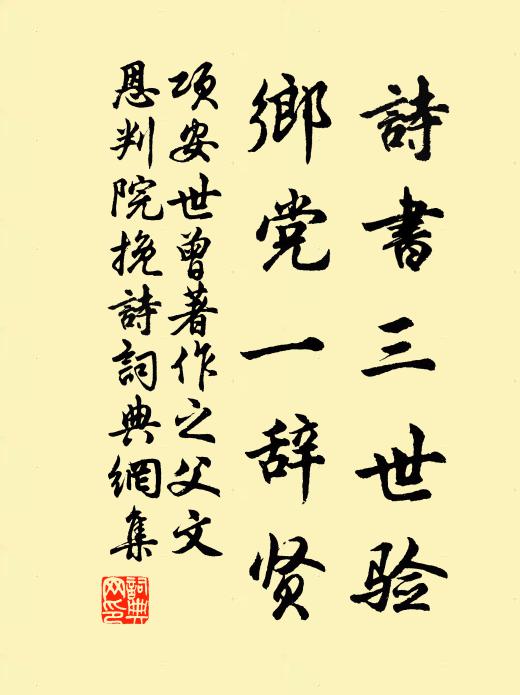 詩書三世验
鄉党一辞贤
项安世曾著作之父文
恩判院挽詩詞典網集